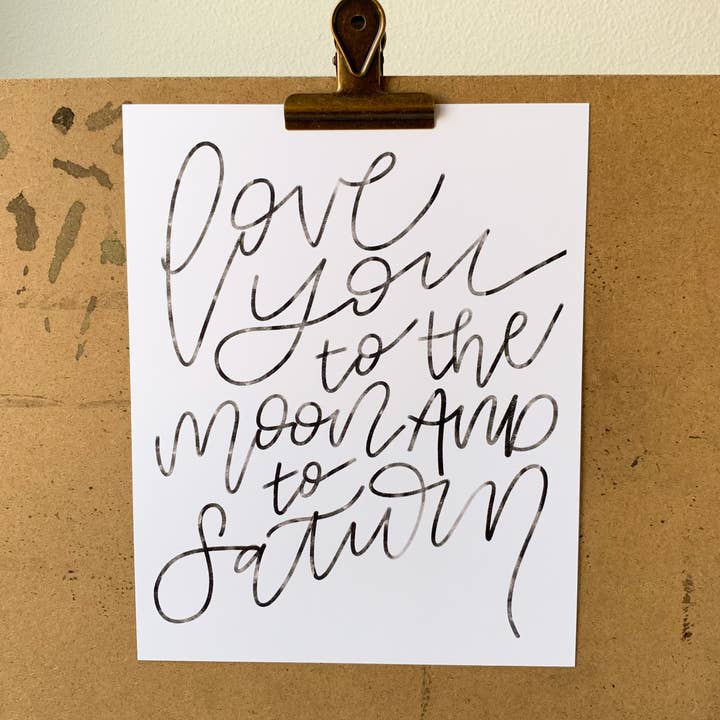 love
you
to the
moon AND
to
Saturn